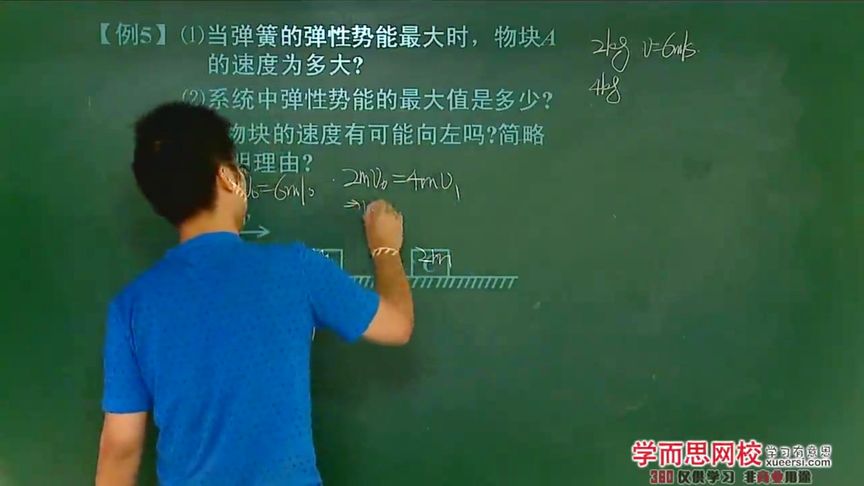 【例5】(1)当弹簧的弹性势能最大时，物块A
的速度为多大?
(2)系统中弹性势能的最大值是多少?
物块的速度有可能向左吗?简略
明理由?
2kg v=6m/s.
4kg
v₀=6m/s
2mv₀=4mv₁
⇒v
2m
学而思网校
学习有意思
xueersi.com
360仅供学习 非商业用途